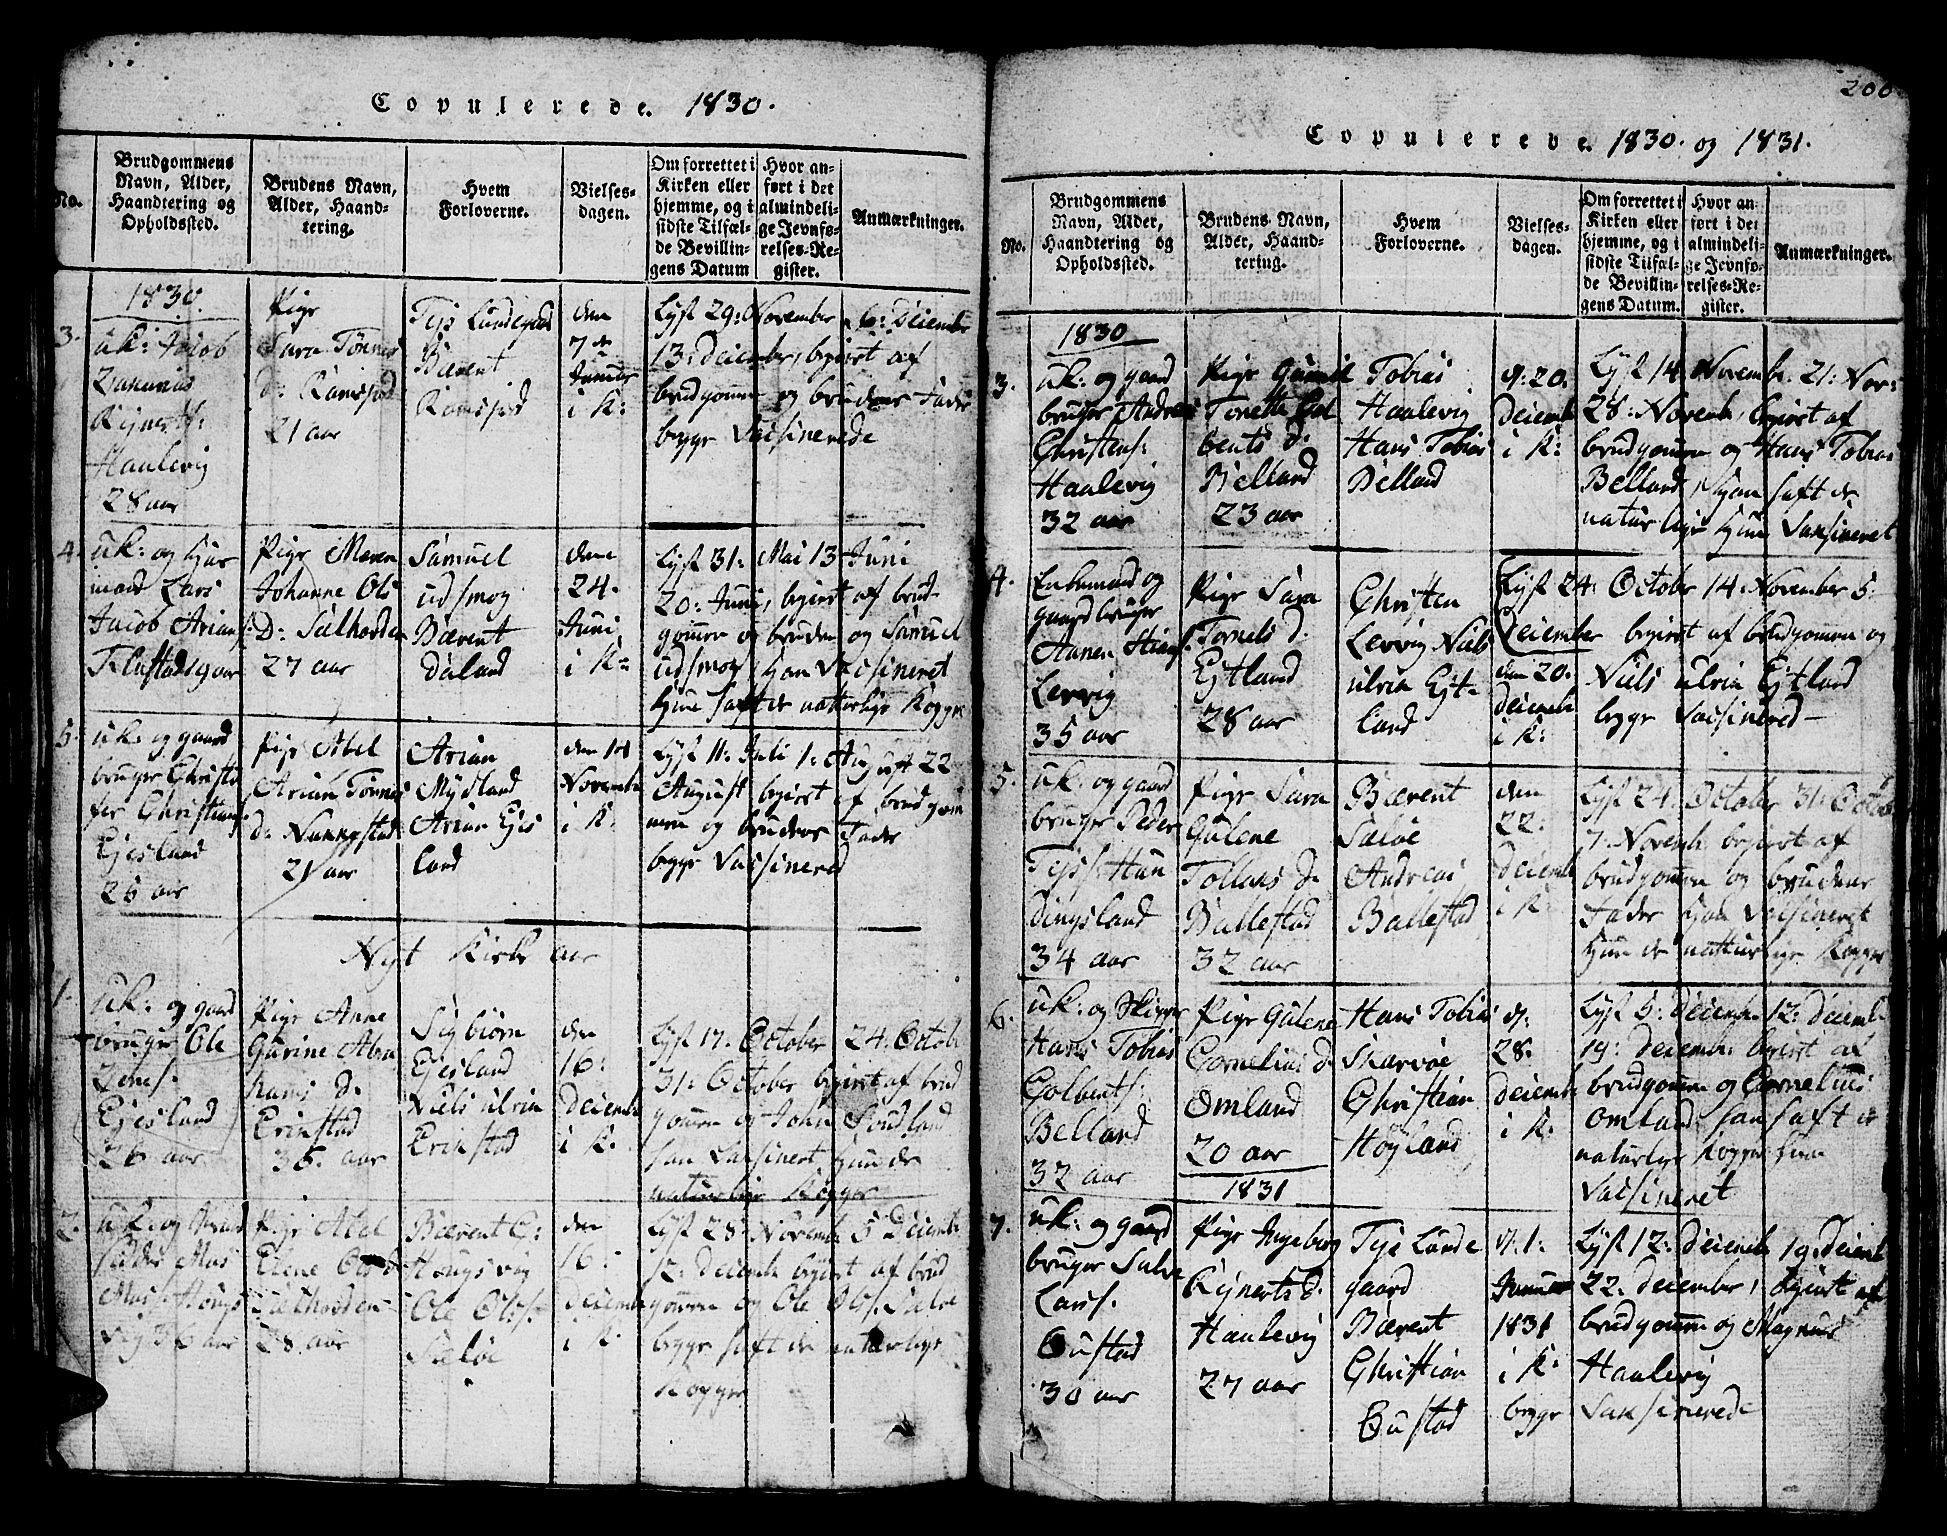 Copulerede. 1830.
No.
Brudgommens
Navn, Alder,
Haandtering og
Opholdssted.
Brudens Navn,
Alder, Haand-
tering.
Hvem
Forloverne.
Vielses-
dagen.
Om forrettet i
Kirken eller
hjemme, og i
sidste Tilfæl-
de Bevillin-
gens Datum
Hvor an-
ført i det
almindeli-
ge Jevnfø-
relses-Re-
gister.
Anmærkninger.
1830.
3.
uk: Jacob
Zakarias
Rejnerts:
Haalevig
28 aar
Pige
Sara Tønnes
d:
21 aar
Teis Lundegaard
Bærent
den
7de
i K:
Lyst 29: November 6: Deiember
13: Deiember, begiert af
brudgomen og brudens Fader
begge Vacsinerede
4.
uk: og
mand Lars
Jacob Arians:
Pige Maren
Johanne Ols
D: Salhodden
27 aar
Samuel
udsmog
Bærent
Daland
den
24.
Juni
i K:
Lyst 31: Mai 13 Juni
20: Juni, begiert af brud-
gomen og bruden og Samuel
udsmog han Vacsineret
hune haft de naturlige Kopper
5.
uk: og gaard
bruger Christo
fer Christians:
Ejesland
25 aar
Pige Abel
Arian Tønnes
d:
21 aar
Arian
Mydland
Arian Ejes
land
den 14
November
i K:
Lyst 11: Juli 1: August 22
August begiert af brudgom
men og brudens Fader
begge Vacsinered
Nyt Kirke aar
1.
uk: og gaard
bruger Ole
Zons:
Ejesland
26 aar
Pige Anne
Gurine Abra
hams d:
Erikstad
36. aar
Sigbiørn
Ejesland
Niels ulrik
Erikstad
den
16:
Deiember
i K:
Lyst 17: October 24: Octobe
31: October begiert af brud
gomen og John Sundland
han Vacsinert hun de
naturlige Kopper
2.
uk: og
Mas
Mas: Hougs
vig 36 aar
Pige Abel
Elene Ols d
Salhodden
28 aar
Bærent G:
Hougsvig
Ole Ols:
Saløe
den
16:
Deiember
i K:
Lyst 28: Novemb 5 Deiembr
12: Deiemb begiert af brud
gomen og Ole Ols: Saløe
begge haft de naturlige
Kopper
200
Copulerede. 1830. og 1831.
No.
Brudgommens
Navn, Alder,
Haandtering og
Opholdssted.
Brudens Navn,
Alder, Haand-
tering.
Hvem
Forloverne.
Vielses-
dagen.
Om forrettet i
Kirken eller
hjemme, og i
sidste Tilfæl-
de Bevillin-
gens Datum.
Hvor an-
ført i det
almindeli-
ge Jevnfø-
relses-Re-
gister.
Anmærkninger.
1830
3.
uk: og gaard
bruger Andreas
Christens:
Haalevig
32 aar
Pige Gunild
Tonette Gol
bents d:
Belland
23 aar
Tobias
Haalevig
Hans Tobias
Belland
d: 20.
Deiemb
i K:
Lyst 14 Novemb: 21: Nov:
28: Novemb, begiert af
brudgomen og Hans Tobias
Belland, han haft de
naturlige hun Vaksineret
4.
Enkemand og
gaardbruger
Lervig
35 aar
Pige Sara
Tornels d:
Ejtland
28 aar
Christen
Lervig Niels
ulrik Ejt-
land
den 20.
Deiemb
i K:
Lyst 24: October 14: November 5:
Deiember begiert af brudgomen og
Niels ulrik Ejtland
begge Vacsinered
5.
uk: og gaard
bruger Peder
Teis: Hun
dingsland
34 aar
Pige Sara
Gulene
Tollaks d:
Ballestad
32 aar
Bærent
Saløe
Andreas
Ballestad
den
22:
Deiemb
i K:
Lyst 24: October 31: Octob
7: Novemb. begiert af
brudgomen og brudens
Fader han Vacsineret
hun de naturlige Kopper
6.
uk: og Skipper
Hans Tobias
Golbents:
Belland
32 aar
Pige Gulene
Cornelius d:
Omland
20 aar
Hans Tobias
Skarvøe
Christian
Høyland
d:
28.
Deiemb
i K:
Lyst 5: Deiemb 12: Deiemb
19: Deiemb: begiert af
brudgomen og Cornelius
Omland han haft de
naturlige Kopper hun
Vacsineret
1831
7.
uk: og gaard
bruger Salve
Lars:
Bustad
30 aar
Pige Ingeborg
Rejnerts d:
Haalevig
27 aar
Teis Lunde
gaard
Bærent
Christian
Bustad
d: 1:
Januar
1831
i K:
Lyst 12: Deiemb 19: Deiemb
22: Deiember, begiert af
brudgomen og Magnus
Haalevig
begge Vaksinerede